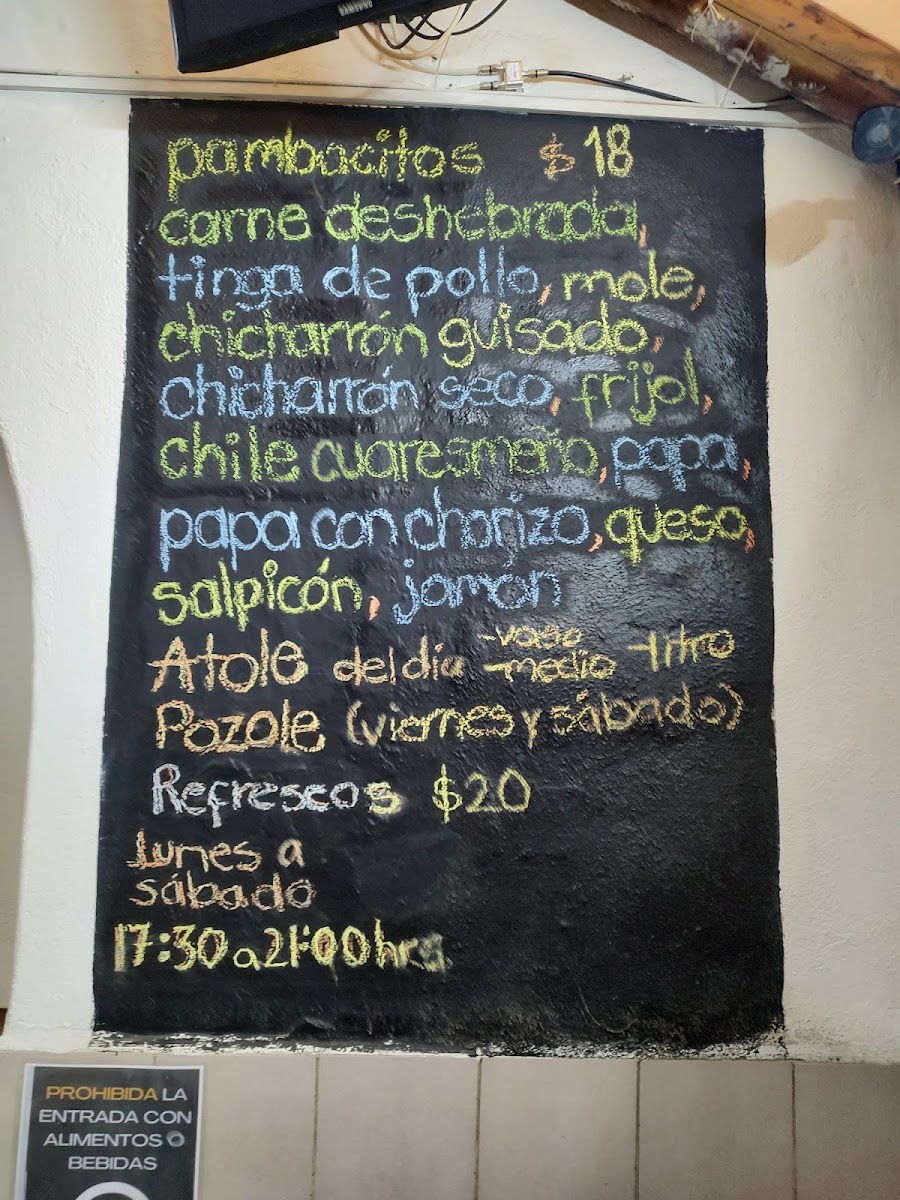 SAMSUNG
pambacitos $18
carne deshebrada,
tinga de pollo, mole,
chicharrón guisado,
chicharrón seco, frijol,
chile cuaresmeño, papa,
papa con chorizo, queso,
salpicón, jamón
Atole del día -vaso -medio -litro
Pozole (viernes y sábado)
Refrescos $20
Lunes a
sábado
17:30 a 21:00 hrs
PROHIBIDA LA
ENTRADA CON
ALIMENTOS O
BEBIDAS